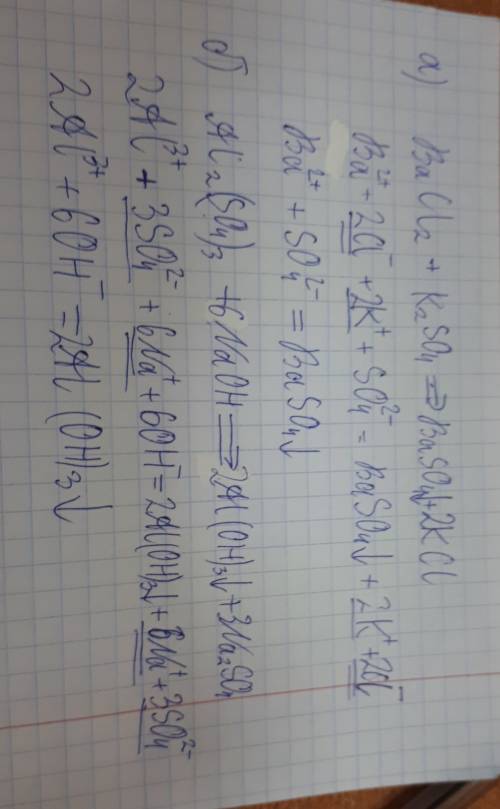 а) BaCl₂ + K₂SO₄ ⇒ BaSO₄↓ + 2KCl
Ba²⁺ + 2Cl⁻ + 2K⁺ + SO₄²⁻ = BaSO₄↓ + 2K⁺ + 2Cl⁻
Ba²⁺ + SO₄²⁻ = BaSO₄↓
б) Al₂(SO₄)₃ + 6NaOH ⇒ 2Al(OH)₃↓ + 3Na₂SO₄
2Al³⁺ + 3SO₄²⁻ + 6Na⁺ + 6OH⁻ = 2Al(OH)₃↓ + 6Na⁺ + 3SO₄²⁻
2Al³⁺ + 6OH⁻ = 2Al(OH)₃↓